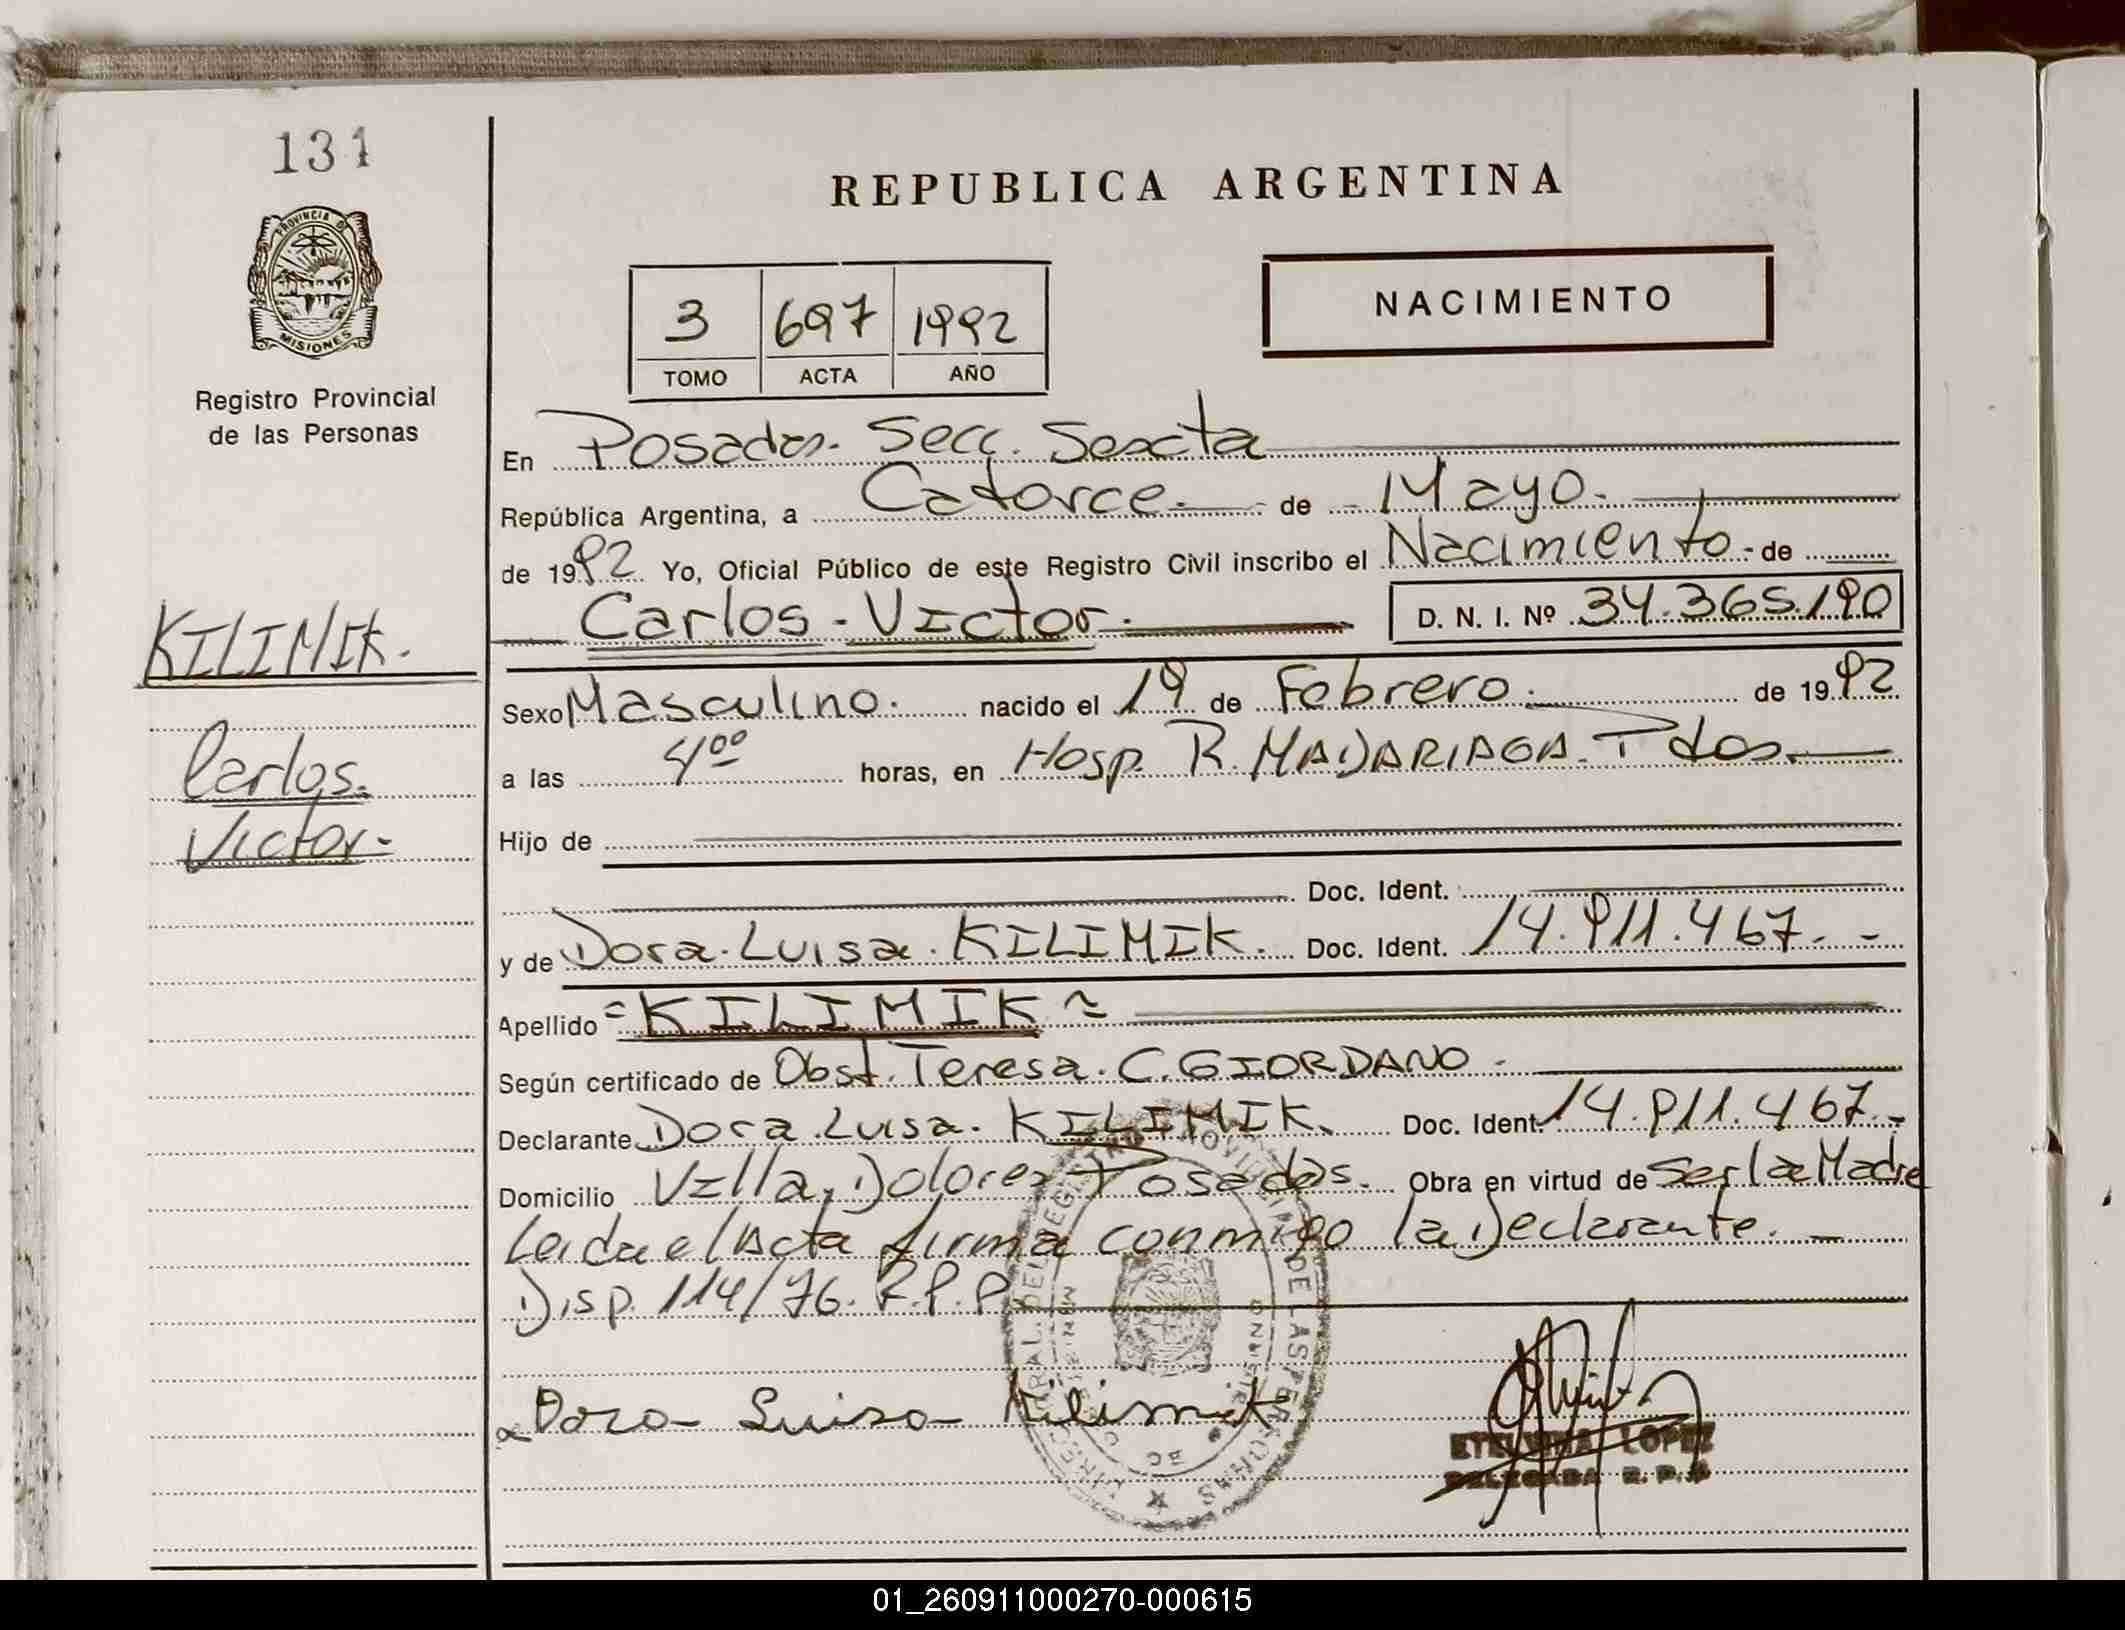 131
PROVINCIA D
MISIONES
Registro Provincial
de las Personas
KILIMIK.
Carlos.
Victor.-
REPUBLICA ARGENTINA
NACIMIENTO
3 697 1992
TOMO ACTA AÑO
En Posadas. Secc. Sexcta
República Argentina, a Catorce.- de - Mayo.-
de 1992 Yo, Oficial Público de este Registro Civil inscribo el Nacimiento.- de
Carlos - Victor.- D. N. I. Nº 34.365.190
Sexo Masculino. nacido el 19 de Febrero. de 1992
a las 4ºº horas, en Hosp. R. MADARIAGA. Pdas.
Hijo de
Doc. Ident.
y de Dora. Luisa. KILIMIK. Doc. Ident. 14.911.467.-
Apellido = KILIMIK =
Según certificado de Obst. Teresa. C. GIORDANO -
Declarante Dora. Luisa. KILIMIK. Doc. Ident. 14.911.467.-
Domicilio Villa, Dolores Posadas. Obra en virtud de Ser la Madre
Leida el Acta firma conmigo la Declarante. -
Disp. 114/76. R.P.P
Dora Luisa Kilimik
ETELVINA LOPEZ
DELEGADA R.P.P
01_260911000270-000615